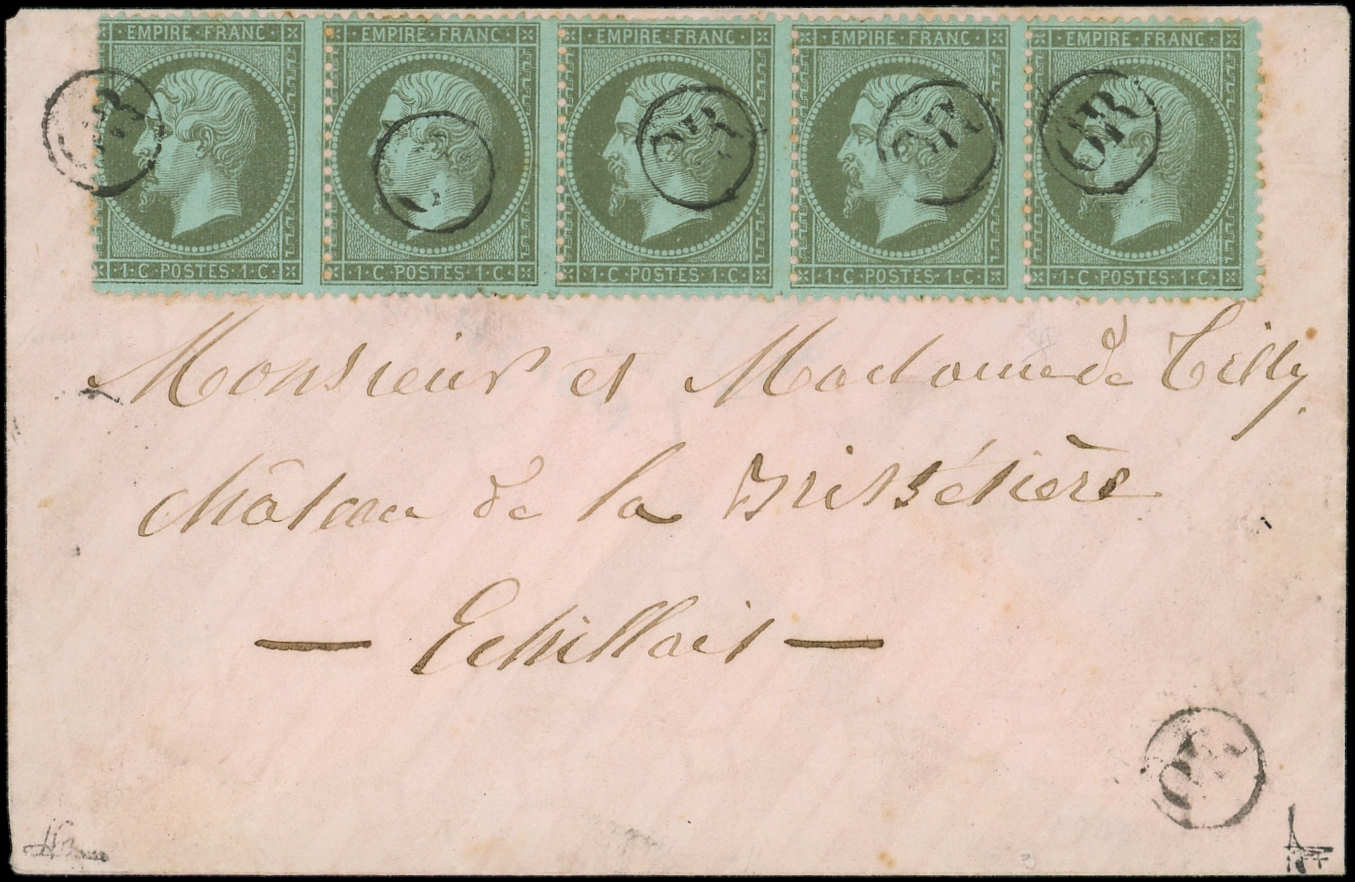 EMPIRE FRANC EMPIRE FRANC EMPIRE FRANC EMPIRE FRANC EMPIRE FRANC
OR OR OR OR
1·C·POSTES·1·C· 1·C·POSTES·1·C· 1·C·POSTES·1·C· 1·C·POSTES·1·C· 1·C·POSTES·1·C·
Monsieur et Madame de Tilly
château de la
— Echillais —
OR